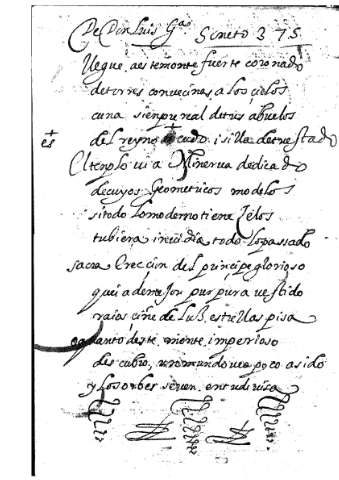 De Don Luis Gª Soneto 375
llegue a este monte fuerte coronado
de torres convecinas a los cielos
cuna siempre real de tus abuelos
es
del reyno escudo i silla de tu estado
El templo vi a Minerva dedicado
de cuyos Geometricos modelos
si todo lo moderno tiene Zelos
tubiera invidia todo lo passado
sacra Erecion del principe glorioso
que ia de mejor purpura vestido
raios ciñe de luz estrellas pisa
o quanto deste monte imperioso
descubro, un mundo veo poco a sido
y los orbes se ven en tu divisa